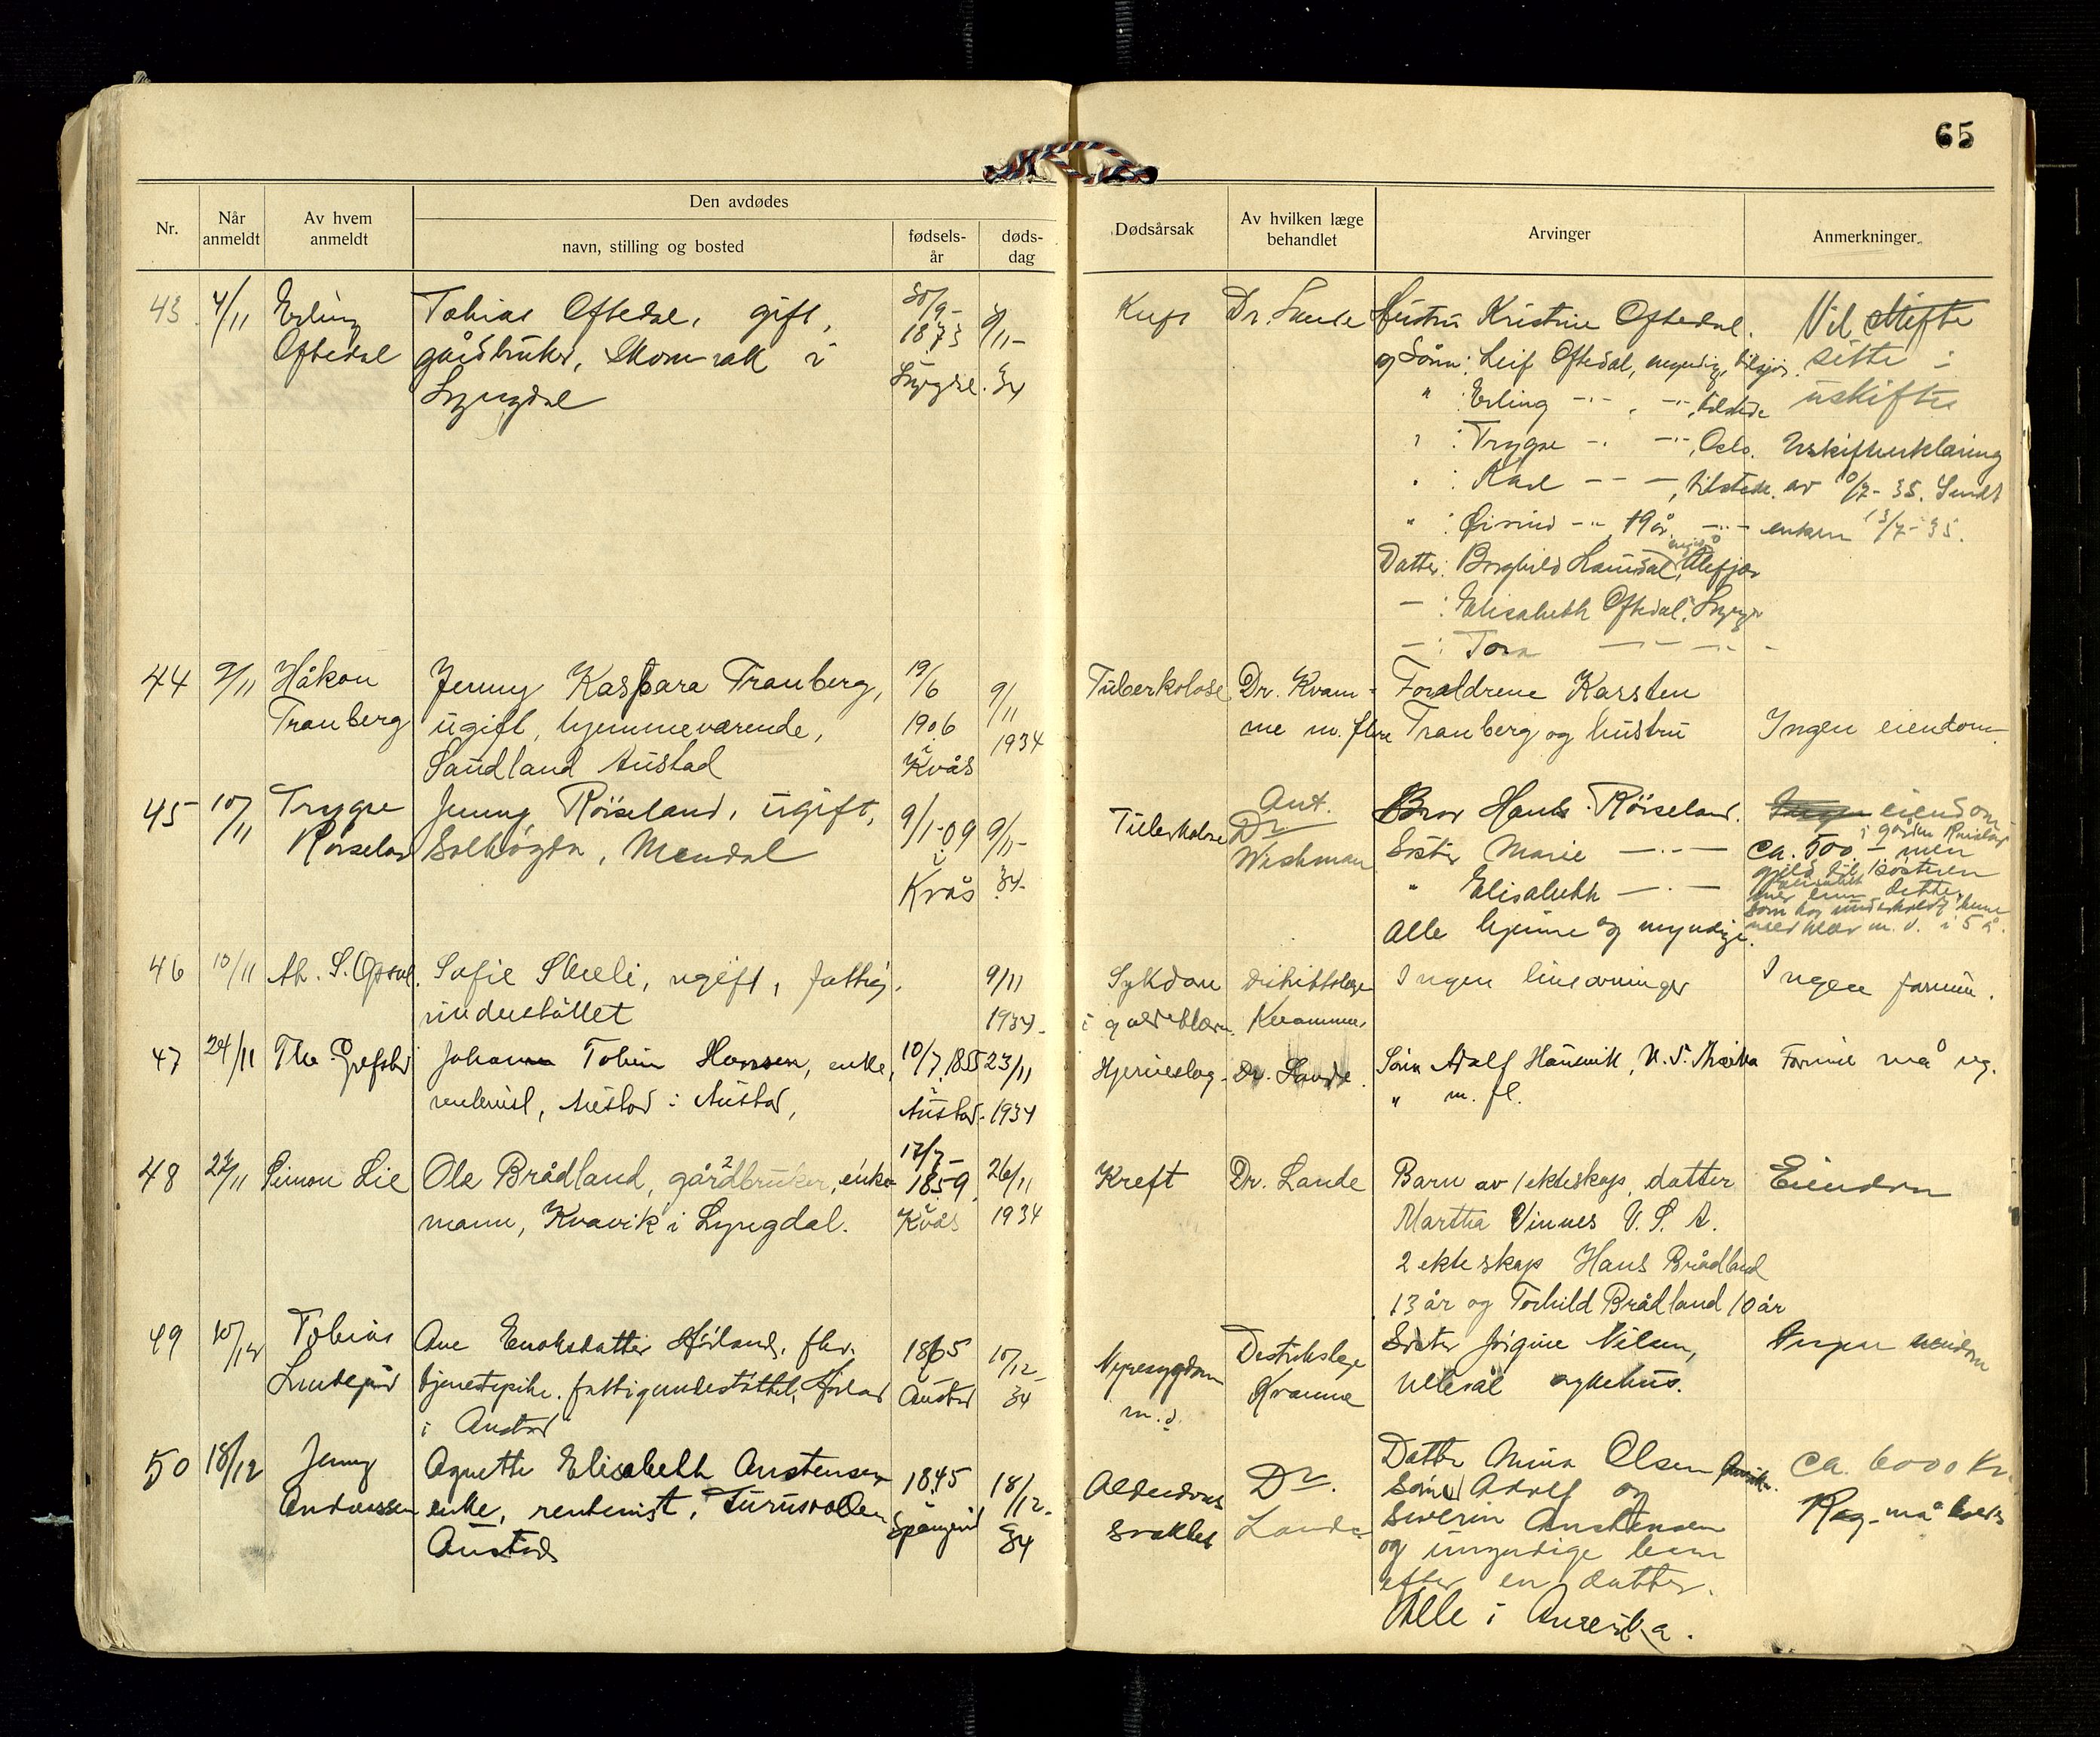 65
Nr.
Når anmeldt
Av hvem anmeldt
Den avdødes
navn, stilling og bosted
fødsels-år
døds-dag
Dødsårsak
Av hvilken læge behandlet
Arvinger
Anmerkninger
43
4/11
Erling
Oftedal
Tobias Oftedal, gift,
gårdbruker, Skomrak i
Lyngdal
30/9-
1873
Lyngdal
3/11-
34
Dr. Lande
Hustru Kristine Oftedal.
og Sønn: Leif Oftedal, myndig,
" : Erling -"- , -"-, tilstede
" : Trygve -"- -"-, Oslo.
" : Karl - - -, tilstede.
" : Øivind -"- 19 år -"-
Datter: Borghild
- : Elisabeth Oftedal, Lyngd
- : Tora - - -"- -
Vil skifte
sitte i
uskifte
Uskifteerklæring
av 10/7-35. Sendt
enken 13/7-35.
44
9/11
Håkon
Tranberg
Jenny Kaspara Tranberg,
ugift, hjemmeværende,
Sandland Austad
19/6
1906
i
Kvås
9/11
1934
Tuberkolose
Dr. Kvam-
me m. flere
Foreldrene Karsten
Tranberg og hustru
Ingen eiendom.
45
10/11
Trygve
Röiseland
Jenny Röiseland, ugift,
Solhögda, Mandal
9/1-09
i
Kvås
9/11-
34.
Tuberkolose
Ant.
Dr
Wichman
Bror Hans Röiseland.
Söster Marie -"-
" Elisabeth -"-
Alle hjemme og myndige.
Ingen eiendom
ca. 500 - men
gjeld til søsteren
som har underholdt henne
med klær m. v. i 5 år.
46
10/11
Ah. S. Opsal.
Sofie Skeeli, ugift, fattig.
understöttet
9/11
1934.
Sykdom
i galdeblæra.
Distriktslege
Kvamme.
Ingen livsarvinger
Ingen formue.
47
24/11
The Grefstad
Johanne Tobine Hansen, enke,
rentenist, Austad i Austad,
10/7 1855
i
Austad.
23/11
1934
Hjerneslag.
Dr. Lande.
Sönn Adolf Hausvik, U. S. Amerika
" m. fl.
Formue må reg.
48
27/11
Simon Lie
Ole Brådland, gårdbruker, enke-
mann, Kvavik i Lyngdal.
17/7-
1859
i
Kvås
26/11
1934
Kreft
Dr. Lande
Barn av 1 ekteskap, datter
Martha Vinnes U. S. A.
2 ekteskap Hans Brådland
13 år og Torhild Brådland 10 år
Eiendom
49
10/12
Tobias
Ane Enoksdatter Höiland, fhv.
tjenestepike. fattigunderstöttet,
i Austad
1865
i
Austad
10/12
34
Nyresygdom
m. v.
Distriktslege
Kvamme
Söster Jörgine Nilsen,
Ullevål sykehus.
Ingen eiendom
50
18/12
Jenny
Andreassen
Agnette Elisabeth Austensen
enke, rentenist,
Austad
1845
Spangereid
18/12-
34
Alderdoms
svakhet
Dr.
Lande
Datter Mina Olsen
Sönn Adolf og
Severin Austensen
og umyndige barn
efter en datter.
Alle i Amerika.
ca. 6000 Kr.
Reg. må holdes